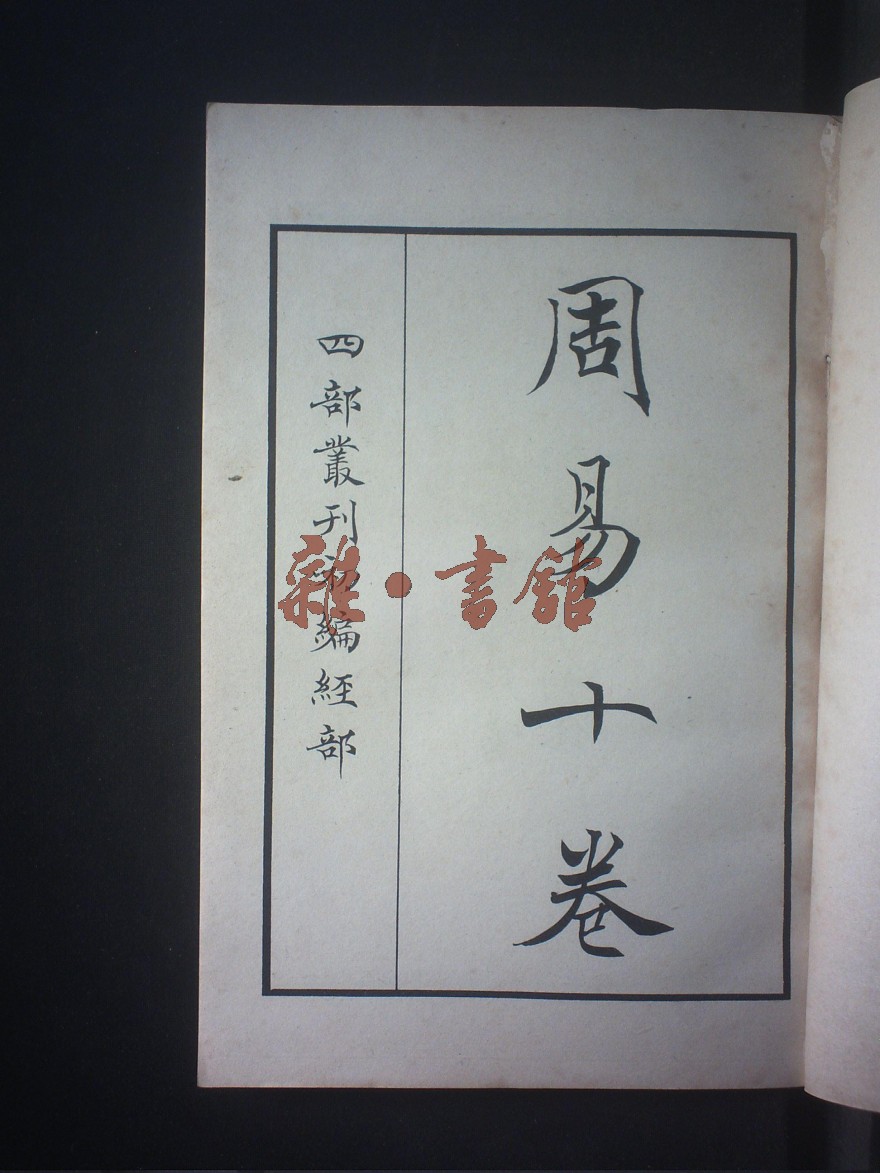 周易十卷
四部叢刊初編經部
雜·書館